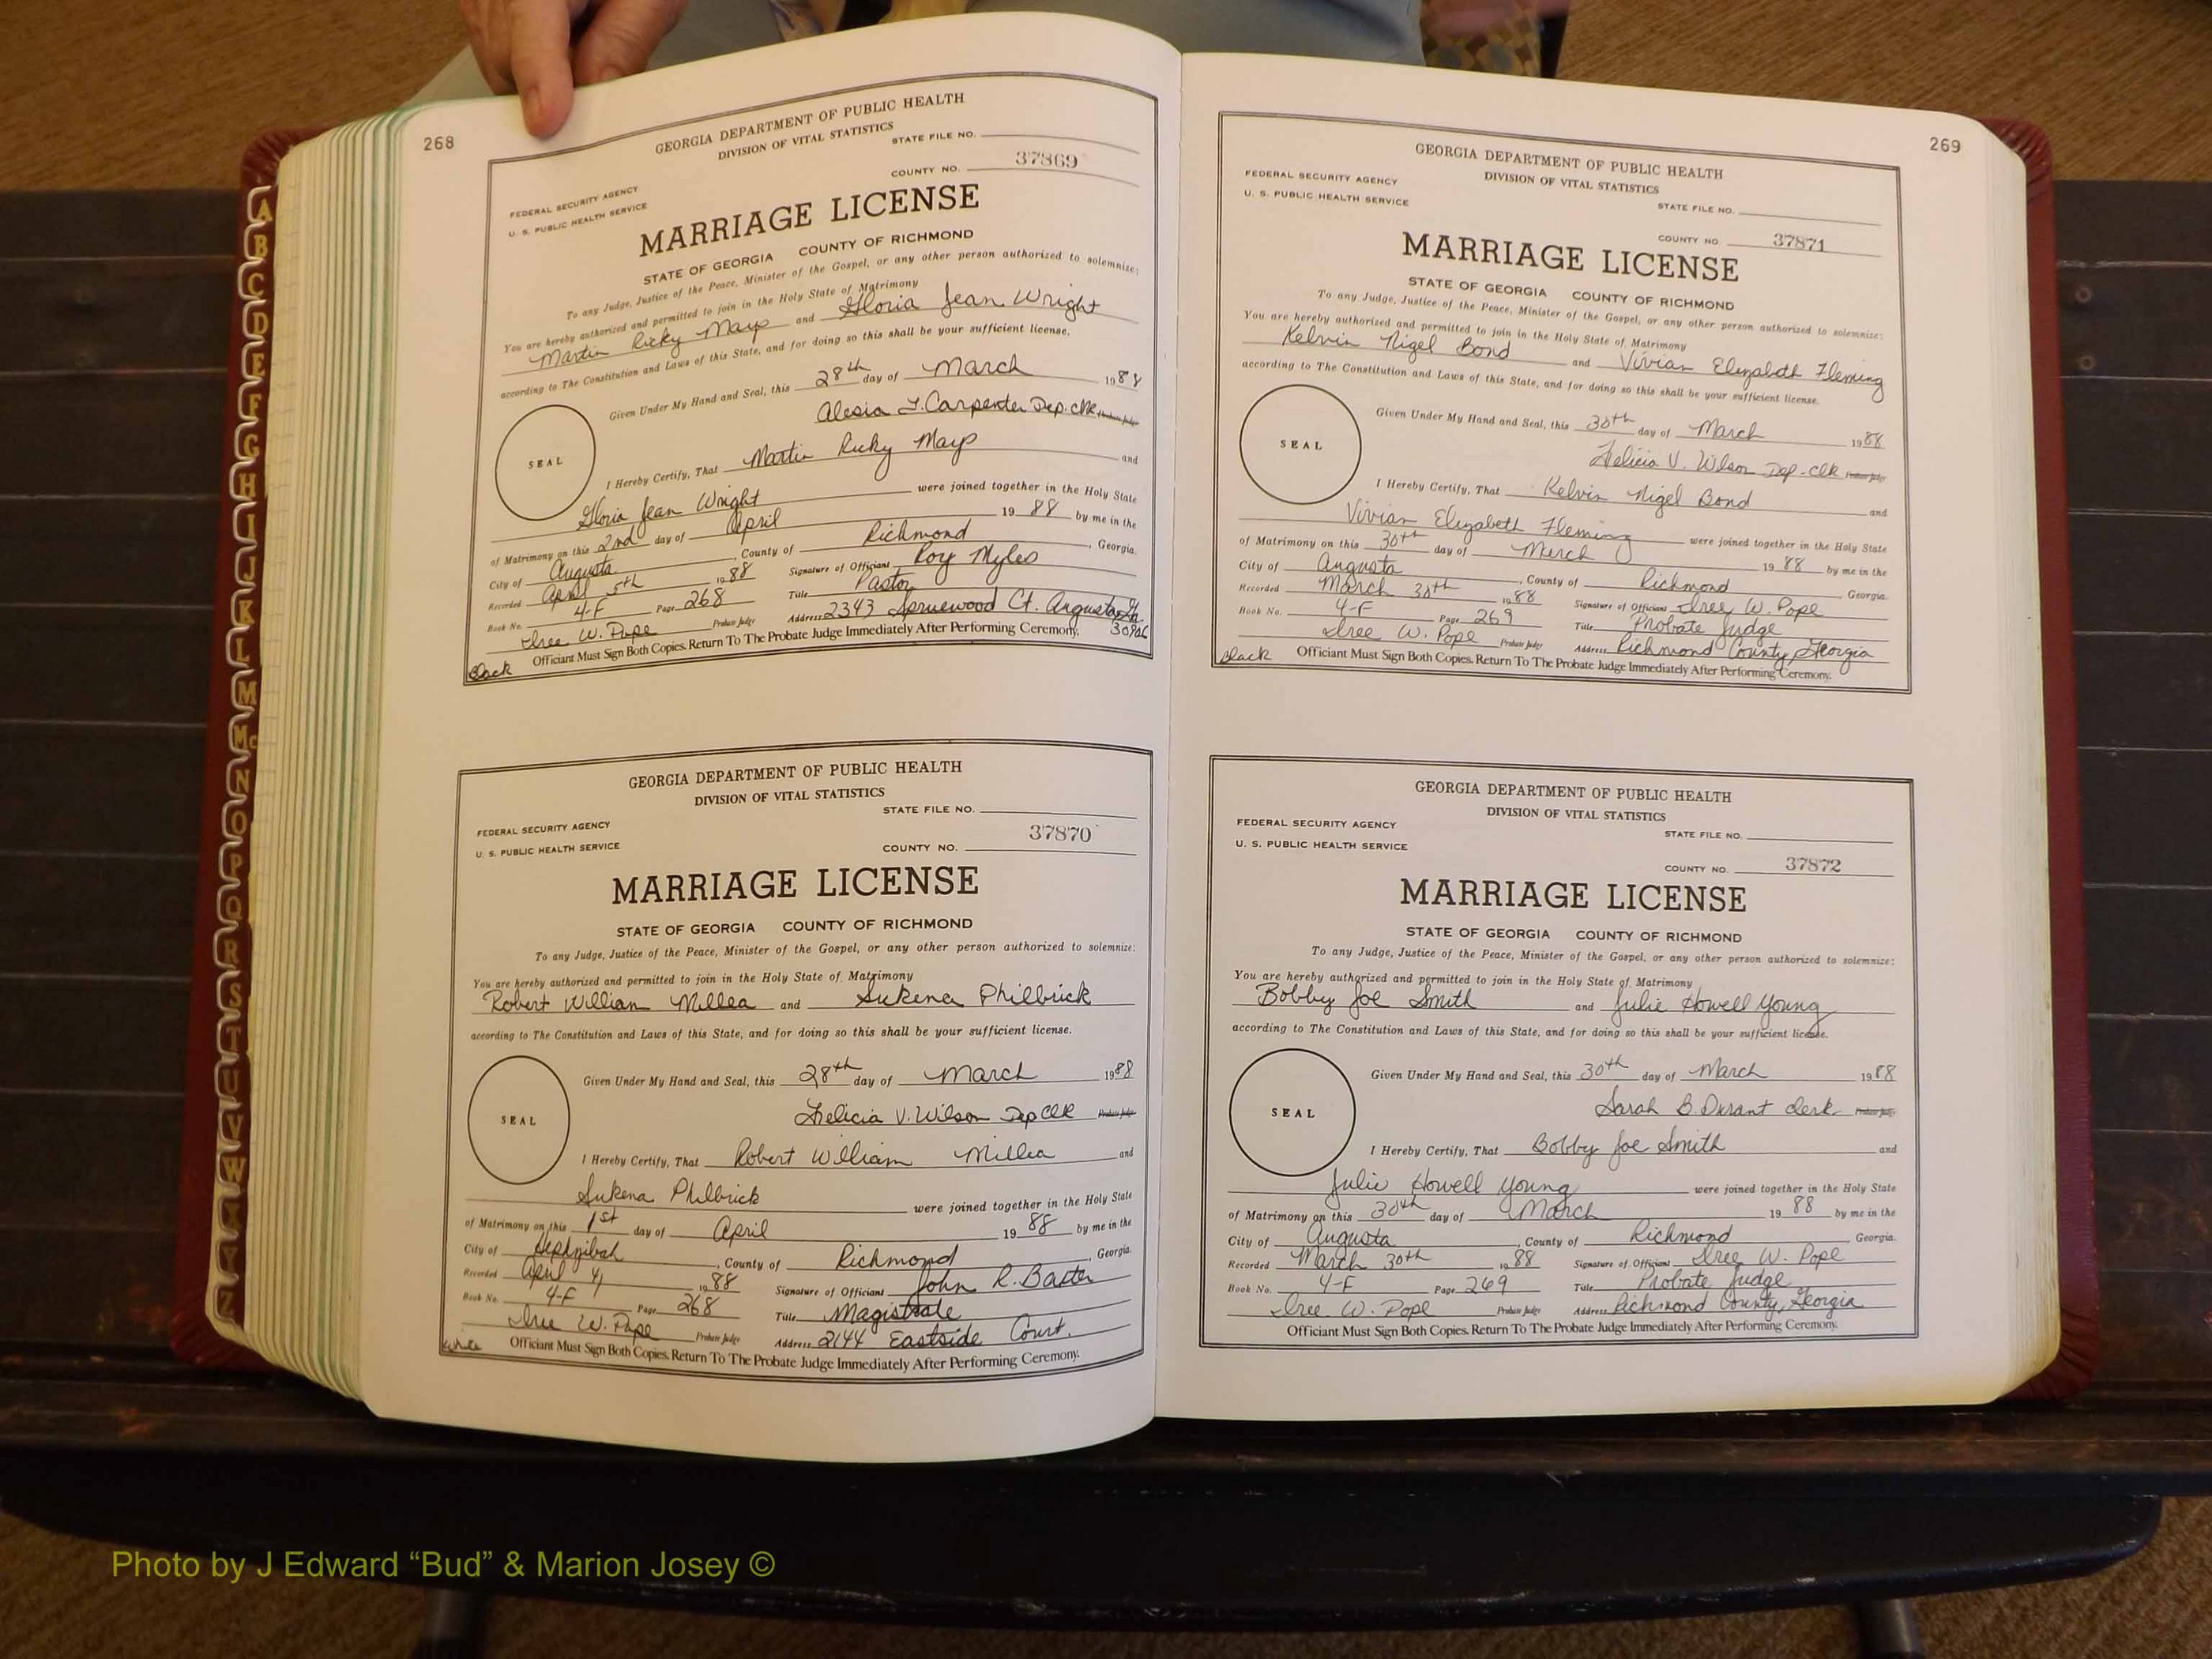 268
GEORGIA DEPARTMENT OF PUBLIC HEALTH
DIVISION OF VITAL STATISTICS
STATE FILE NO.
37869
COUNTY NO.
FEDERAL SECURITY AGENCY
U. S. PUBLIC HEALTH SERVICE
MARRIAGE LICENSE
STATE OF GEORGIA COUNTY OF RICHMOND
To any Judge, Justice of the Peace, Minister of the Gospel, or any other person authorized to solemnize:
You are hereby authorized and permitted to join in the Holy State of Matrimony
Martin Ricky Mays and Gloria Jean Wright
according to The Constitution and Laws of this State, and for doing so this shall be your sufficient license.
Given Under My Hand and Seal, this 28th day of March 1988
Alesia L. Carpenter Dep. Clk Probate Judge
SEAL
I Hereby Certify, That Martin Ricky Mays and
Gloria Jean Wright were joined together in the Holy State
of Matrimony on this 2nd day of April 19 88 by me in the
City of Augusta, County of Richmond, Georgia.
Recorded April 5th 1988 Signature of Officiant Roy Myles
Book No. 4-F Page 268 Title Pastor
Iree W. Pope Probate Judge Address 2343 Sprucewood Ct. Augusta, Ga.
30906
Officiant Must Sign Both Copies. Return To The Probate Judge Immediately After Performing Ceremony.
Black
GEORGIA DEPARTMENT OF PUBLIC HEALTH
DIVISION OF VITAL STATISTICS
STATE FILE NO.
FEDERAL SECURITY AGENCY
U. S. PUBLIC HEALTH SERVICE
COUNTY NO. 37870
MARRIAGE LICENSE
STATE OF GEORGIA COUNTY OF RICHMOND
To any Judge, Justice of the Peace, Minister of the Gospel, or any other person authorized to solemnize:
You are hereby authorized and permitted to join in the Holy State of Matrimony
Robert William Millea and Sukena Philbrick
according to The Constitution and Laws of this State, and for doing so this shall be your sufficient license.
Given Under My Hand and Seal, this 28th day of March 1988
Felicia V. Wilson Dep Clk Probate Judge
SEAL
I Hereby Certify, That Robert William Millea and
Sukena Philbrick were joined together in the Holy State
of Matrimony on this 1st day of April 19 88 by me in the
City of Hephzibah, County of Richmond, Georgia.
Recorded April 4, 1988 Signature of Officiant John R. Baxter
Book No. 4-F Page 268 Title Magistrate
Iree W. Pope Probate Judge Address 2144 Eastside Court.
Officiant Must Sign Both Copies. Return To The Probate Judge Immediately After Performing Ceremony.
White
269
GEORGIA DEPARTMENT OF PUBLIC HEALTH
DIVISION OF VITAL STATISTICS
FEDERAL SECURITY AGENCY
U. S. PUBLIC HEALTH SERVICE
STATE FILE NO.
COUNTY NO. 37871
MARRIAGE LICENSE
STATE OF GEORGIA COUNTY OF RICHMOND
To any Judge, Justice of the Peace, Minister of the Gospel, or any other person authorized to solemnize:
You are hereby authorized and permitted to join in the Holy State of Matrimony
Kelvin Nigel Bond and Vivian Elizabeth Fleming
according to The Constitution and Laws of this State, and for doing so this shall be your sufficient license.
Given Under My Hand and Seal, this 30th day of March 1988
Felicia V. Wilson Dep-Clk Probate Judge
SEAL
I Hereby Certify, That Kelvin Nigel Bond and
Vivian Elizabeth Fleming were joined together in the Holy State
of Matrimony on this 30th day of March 19 88 by me in the
City of Augusta, County of Richmond Georgia.
Recorded March 30th 1988 Signature of Officiant Iree W. Pope
Book No. 4-F Page 269 Title Probate Judge
Iree W. Pope Probate Judge Address Richmond County, Georgia
Officiant Must Sign Both Copies. Return To The Probate Judge Immediately After Performing Ceremony.
Black
GEORGIA DEPARTMENT OF PUBLIC HEALTH
DIVISION OF VITAL STATISTICS
FEDERAL SECURITY AGENCY
U. S. PUBLIC HEALTH SERVICE
STATE FILE NO.
COUNTY NO. 37872
MARRIAGE LICENSE
STATE OF GEORGIA COUNTY OF RICHMOND
To any Judge, Justice of the Peace, Minister of the Gospel, or any other person authorized to solemnize:
You are hereby authorized and permitted to join in the Holy State of Matrimony
Bobby Joe Smith and Julie Howell Young
according to The Constitution and Laws of this State, and for doing so this shall be your sufficient license.
Given Under My Hand and Seal, this 30th day of March 1988
Sarah B. Durant Clerk Probate Judge
SEAL
I Hereby Certify, That Bobby Joe Smith and
Julie Howell Young were joined together in the Holy State
of Matrimony on this 30th day of March 19 88 by me in the
City of Augusta, County of Richmond, Georgia.
Recorded March 30th 1988 Signature of Officiant Iree W. Pope
Book No. 4-F Page 269 Title Probate Judge
Iree W. Pope Probate Judge Address Richmond County, Georgia
Officiant Must Sign Both Copies. Return To The Probate Judge Immediately After Performing Ceremony.
A
B
C
D
E
F
G
H
I
J
K
L
M
Mc
N
O
P
Q
R
S
T
U
V
W
X
Y
Z
Photo by J Edward “Bud” & Marion Josey ©